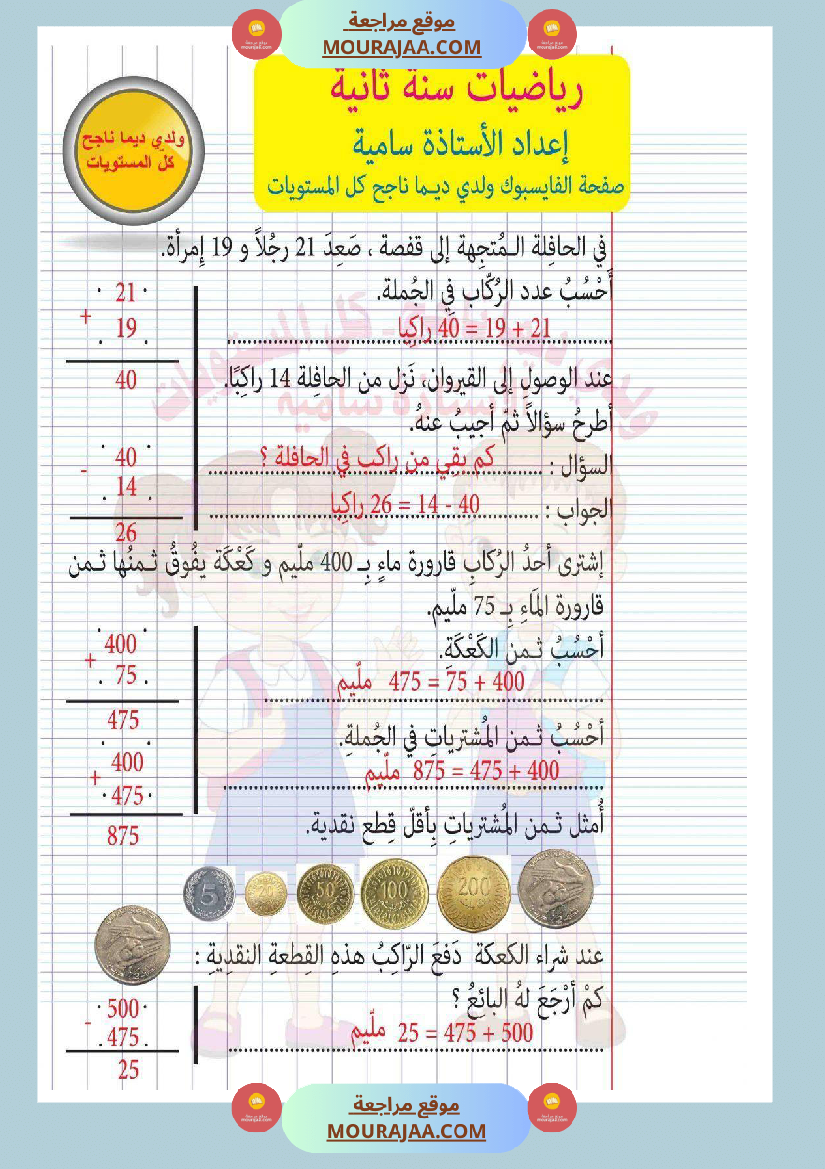 موقع مراجعة
MOURAJAA.COM
رياضيات سنة ثانية
إعداد الأستاذة سامية
صفحة الفايسبوك ولدي ديما ناجح كل المستويات
ولدي ديما ناجح
كلّ المستويات
في الحافِلة المُتجِهة إلى قفصة ، صَعِدَ 21 رجُلاً و 19 إمرأة.
أَحْسُبُ عدد الرُكّاب فِي الجُملة.
21 + 19 = 40 راكِبا
21
+
19
40
عند الوصولِ إلى القيروان، نَزل من الحافِلة 14 راكِبًا.
أطرحُ سؤالاً ثمّ أجيبُ عنهُ.
السؤال : كم بقِي من راكب في الحافلة ؟
الجواب : 40 - 14 = 26 راكِبا
40
-
14
26
إشترى أحدُ الرُكابِ قارورة ماءٍ بِـ 400 ملّيم و كَعْكَة يفُوقُ ثمنُها ثمن
قارورة المَاءِ بِـ 75 ملّيم.
أحْسُبُ ثمن الكَعْكَةِ.
400 + 75 = 475 ملّيم
400
+
75
475
أحْسُبُ ثمن المُشترياتِ في الجُملةِ.
400 + 475 = 875 ملّيم
400
+
475
875
أُمثل ثمن المُشترياتِ بِأقلّ قِطع نقدية.
5
20
50
100
200
عند شراء الكعكة دَفعَ الرّاكِبُ هذهِ القِطعةِ النقدِيةِ :
كمْ أرْجَعَ لهُ البائِعُ ؟
500 + 475 = 25 ملّيم
500
-
475
25
موقع مراجعة
MOURAJAA.COM